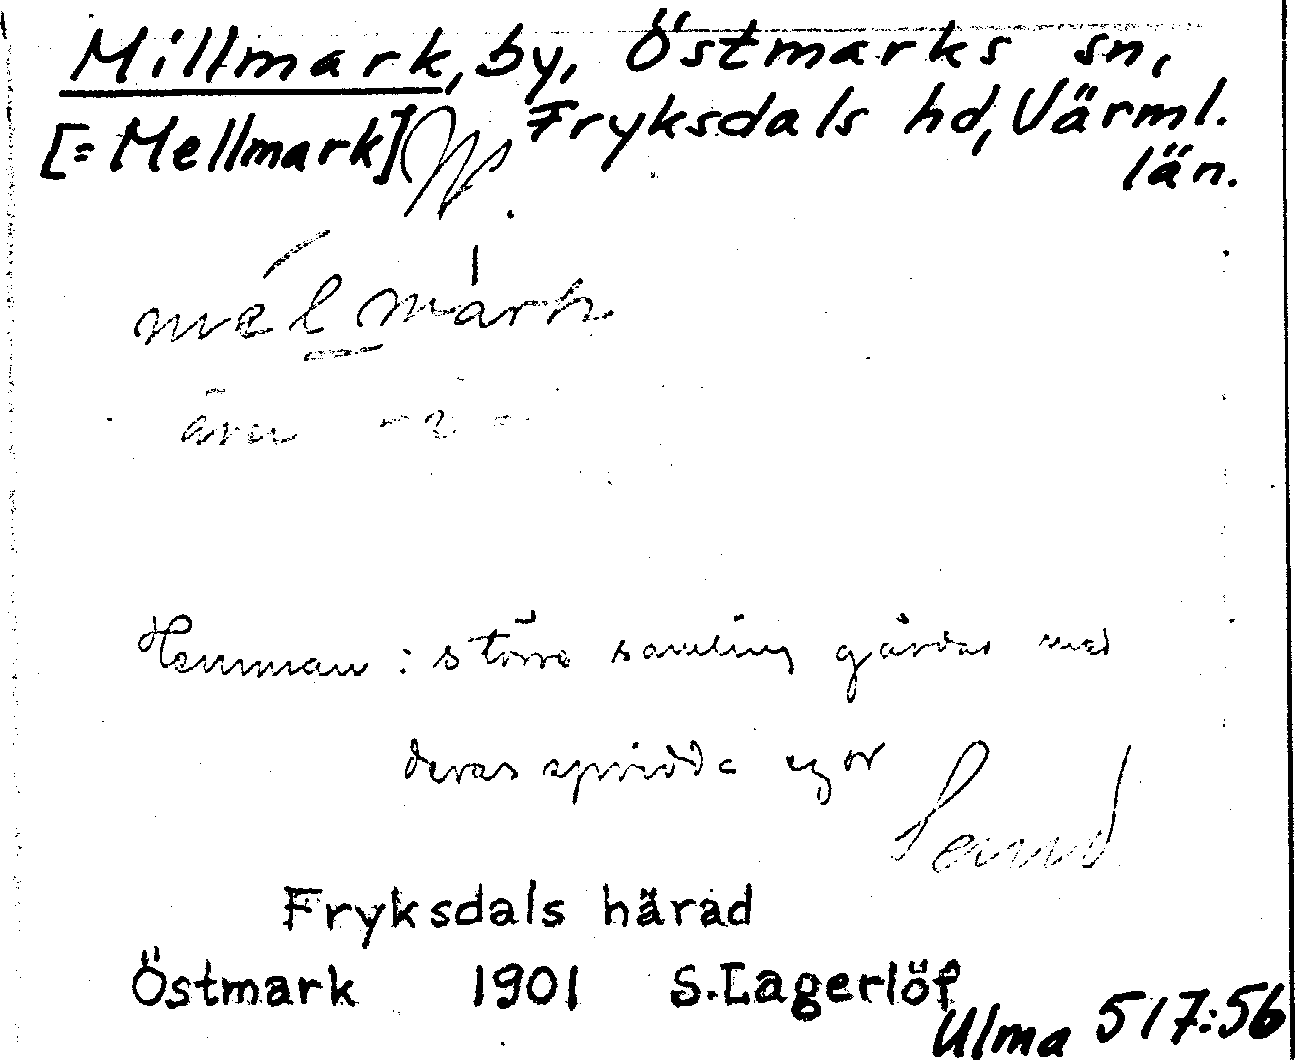 Millmark, by, Östmarks sn,
[= Mellmark] Fryksdals hd, Värml.
län.
mélmark
även -2-
Hemman: större samling gårdar med
deras spridda egor
Fryksdals härad
Östmark 1901 S. Lagerlöf
Ulma 517:56